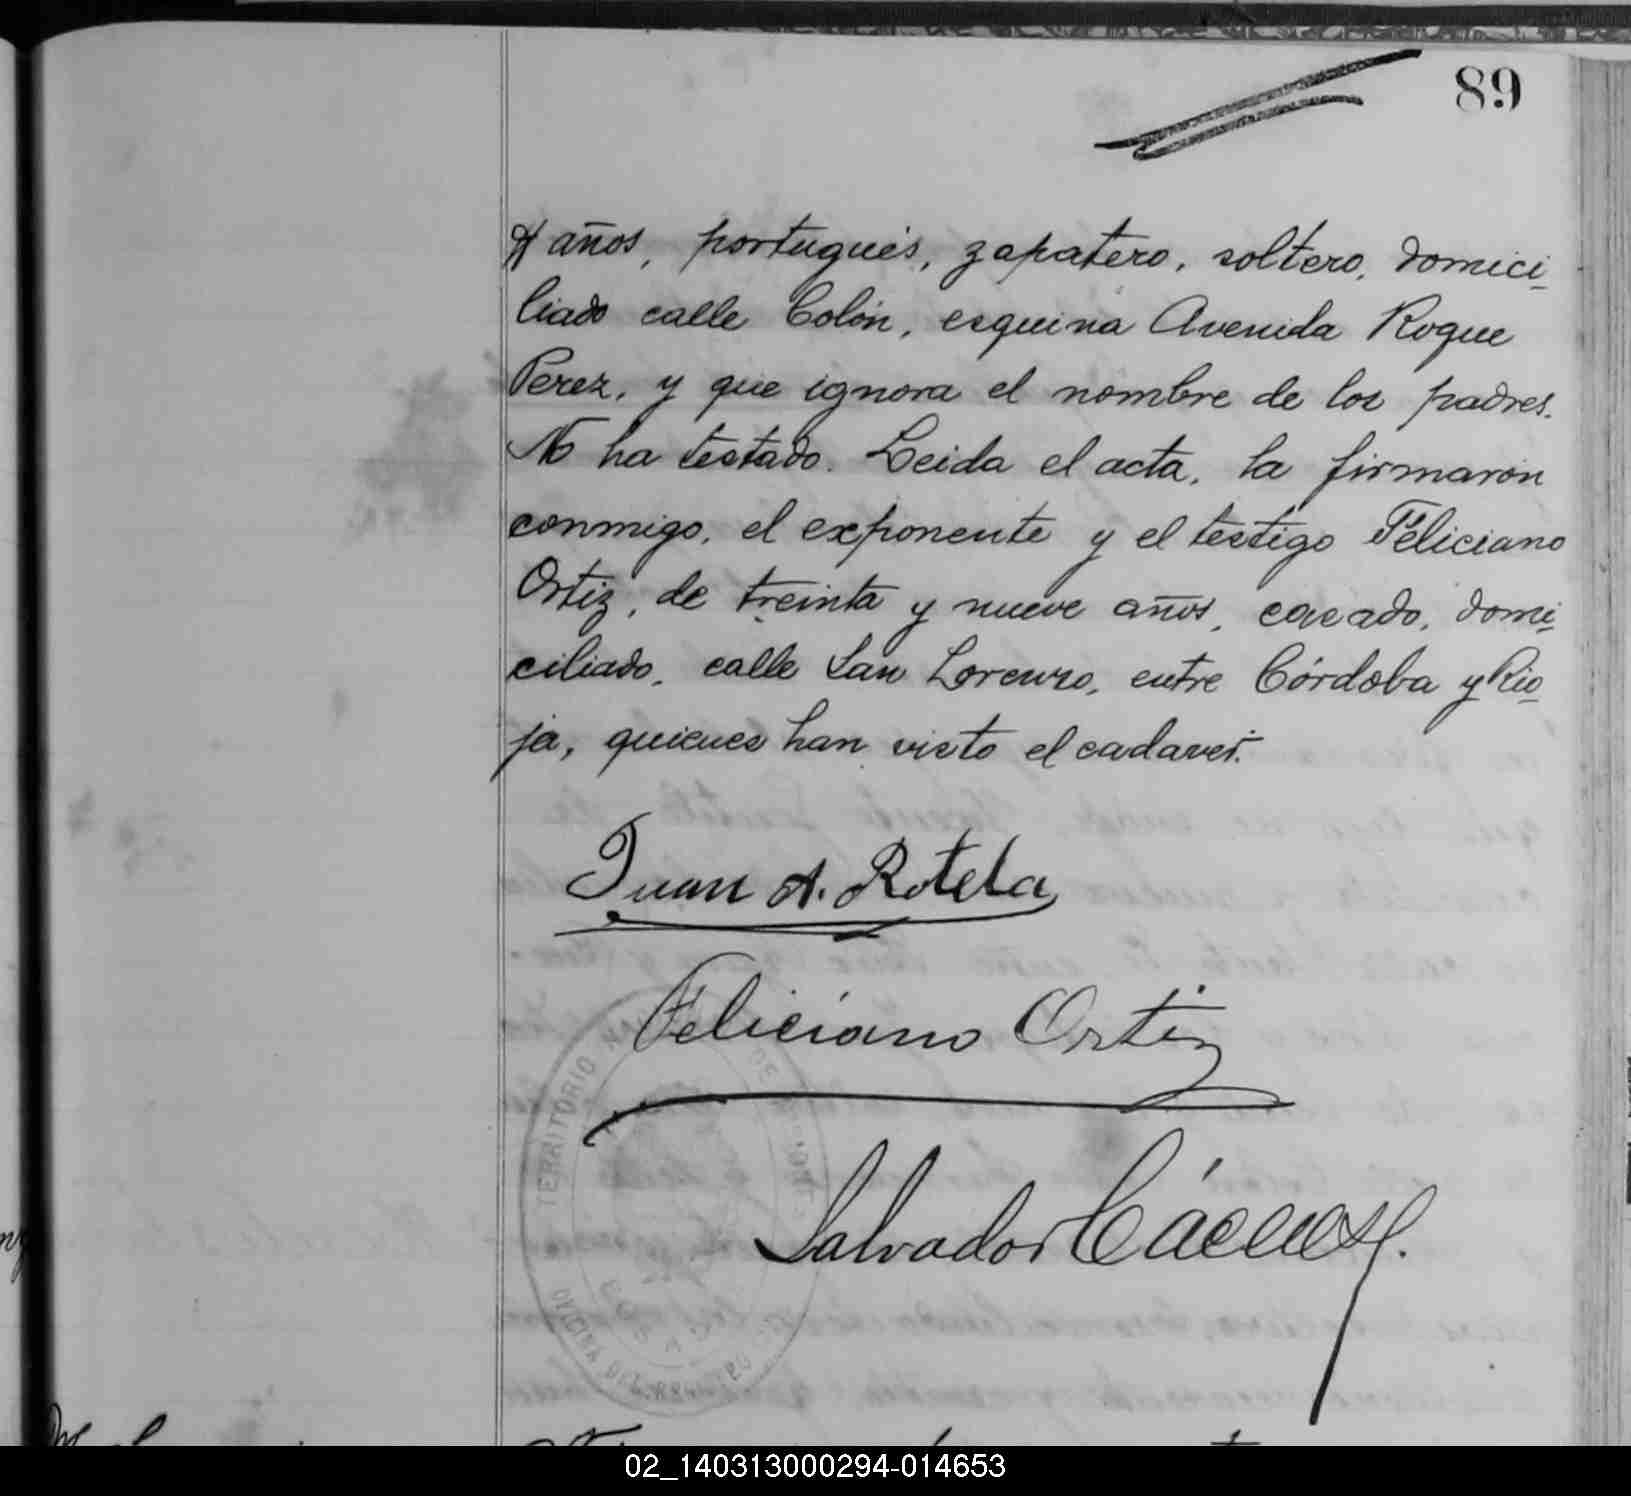 89
años, portugués, zapatero, soltero, domici-
liado calle Colón, esquina Avenida Roque
Perez, y que ignora el nombre de los padres.
No ha testado. Leida el acta, la firmaron
conmigo, el exponente y el testigo Feliciano
Ortiz, de treinta y nueve años, casado, domi-
ciliado, calle San Lorenzo, entre Córdoba y Rio-
ja, quienes han visto el cadaver.
Juan A. Rotela
Feliciano Ortiz
Salvador
TERRITORIO
OFICINA DEL REGISTRO
02_140313000294-014653